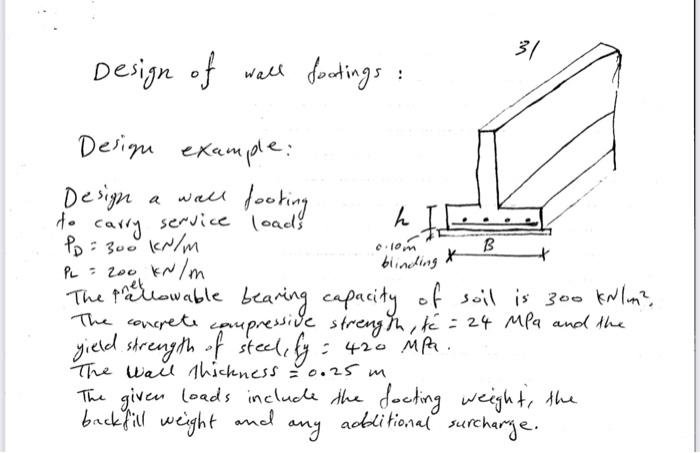 31
Design of wall footings :
Design example:
Design a wall footing
to carry service loads
PD = 300 kN/m
PL = 200 kN/m
h
0.10m
blinding
B
The net allowable bearing capacity of soil is 300 kN/m².
The concrete compressive strength, fc' = 24 MPa and the
yield strength of steel, fy = 420 MPa.
The wall thickness = 0.25 m
The given loads include the footing weight, the
backfill weight and any additional surcharge.